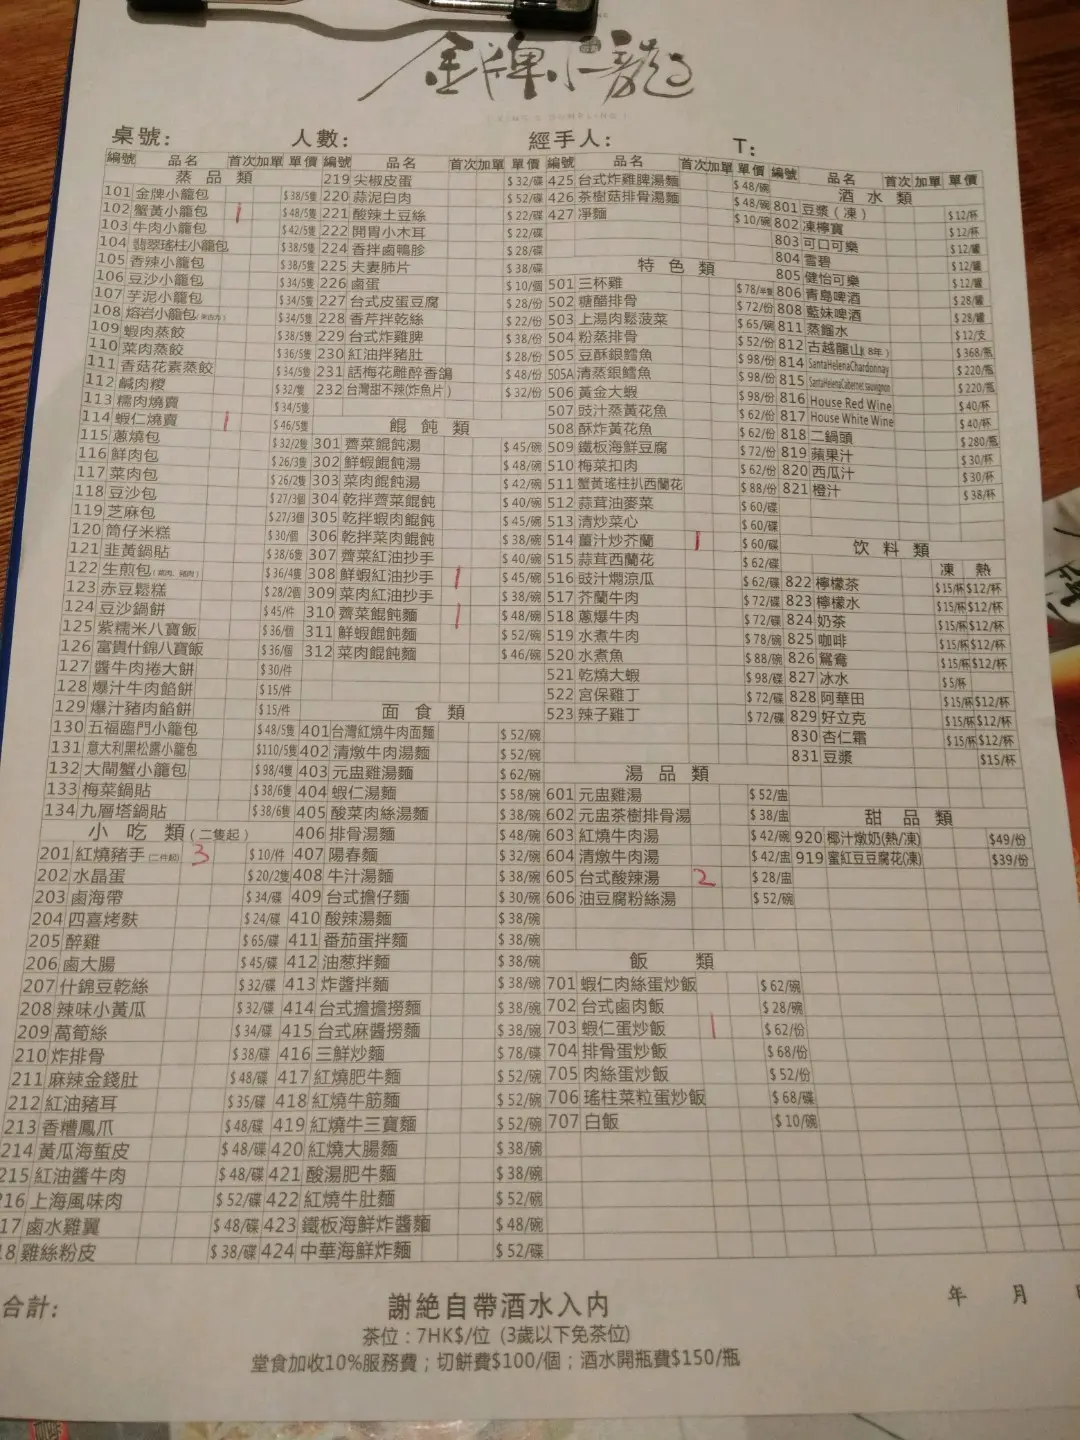 金牌小籠
KING'S DUMPLING
桌號: 人數: 經手人: T:
編號 品名 首次 加單 單價 編號 品名 首次 加單 單價 編號 品名 首次 加單 單價 編號 品名 首次 加單 單價
蒸品類
101 金牌小籠包 $38/5隻
102 蟹黃小籠包 1 $48/5隻
103 牛肉小籠包 $42/5隻
104 翡翠瑤柱小籠包 $38/5隻
105 香辣小籠包 $38/5隻
106 豆沙小籠包 $34/5隻
107 芋泥小籠包 $34/5隻
108 熔岩小籠包 $34/5隻
109 蝦肉蒸餃 $38/5隻
110 菜肉蒸餃 $36/5隻
111 香菇花素蒸餃 $34/5隻
112 鹹肉糉 $32/隻
113 糯肉燒賣 $34/5隻
114 蝦仁燒賣 1 $46/5隻
115 蔥燒包 $32/2隻
116 鮮肉包 $26/3隻
117 菜肉包 $26/2隻
118 豆沙包 $27/3個
119 芝麻包 $27/3個
120 筒仔米糕 $30/個
121 韭黃鍋貼 $38/6隻
122 生煎包 $36/4隻
123 赤豆鬆糕 $28/2個
124 豆沙鍋餅 $45/件
125 紫糯米八寶飯 $36/個
126 富貴什錦八寶飯 $36/個
127 醬牛肉捲大餅 $30/件
128 爆汁牛肉餡餅 $15/件
129 爆汁豬肉餡餅 $15/件
130 五福臨門小籠包 $48/5隻
131 意大利黑松露小籠包 $110/5隻
132 大閘蟹小籠包 $98/4隻
133 梅菜鍋貼 $38/6隻
134 九層塔鍋貼 $38/6隻
小吃類(二隻起)
201 紅燒豬手(二件起) 3 $10/件
202 水晶蛋 $20/2隻
203 鹵海帶 $34/碟
204 四喜烤麩 $24/碟
205 醉雞 $65/碟
206 鹵大腸 $45/碟
207 什錦豆乾絲 $32/碟
208 辣味小黃瓜 $32/碟
209 萵筍絲 $34/碟
210 炸排骨 $38/碟
211 麻辣金錢肚 $48/碟
212 紅油豬耳 $35/碟
213 香糟鳳爪 $48/碟
214 黃瓜海蜇皮 $48/碟
215 紅油醬牛肉 $48/碟
216 上海風味肉 $52/碟
17 鹵水雞翼 $48/碟
8 雞絲粉皮 $38/碟
219 尖椒皮蛋 $32/碟
220 蒜泥白肉 $52/碟
221 酸辣土豆絲 $22/碟
222 開胃小木耳 $22/碟
224 香拌鹵鴨胗 $28/碟
225 夫妻肺片 $38/碟
226 鹵蛋 $10/個
227 台式皮蛋豆腐 $28/份
228 香芹拌乾絲 $22/份
229 台式炸雞脾 $38/份
230 紅油拌豬肚 $28/份
231 話梅花雕醉香鴿 $48/份
232 台灣甜不辣(炸魚片) $32/份
餛飩類
301 薺菜餛飩湯 $45/碗
302 鮮蝦餛飩湯 $48/碗
303 菜肉餛飩湯 $42/碗
304 乾拌薺菜餛飩 $40/碗
305 乾拌蝦肉餛飩 $45/碗
306 乾拌菜肉餛飩 $38/碗
307 薺菜紅油抄手 $40/碗
308 鮮蝦紅油抄手 1 $45/碗
309 菜肉紅油抄手 $38/碗
310 薺菜餛飩麵 1 $48/碗
311 鮮蝦餛飩麵 $52/碗
312 菜肉餛飩麵 $46/碗
面食類
401 台灣紅燒牛肉面麵 $52/碗
402 清燉牛肉湯麵 $52/碗
403 元盅雞湯麵 $62/碗
404 蝦仁湯麵 $58/碗
405 酸菜肉絲湯麵 $38/碗
406 排骨湯麵 $48/碗
407 陽春麵 $32/碗
408 牛汁湯麵 $38/碗
409 台式擔仔麵 $30/碗
410 酸辣湯麵 $38/碗
411 番茄蛋拌麵 $38/碗
412 油葱拌麵 $38/碗
413 炸醬拌麵 $38/碗
414 台式擔擔撈麵 $38/碗
415 台式麻醬撈麵 $38/碗
416 三鮮炒麵 $78/碟
417 紅燒肥牛麵 $52/碗
418 紅燒牛筋麵 $52/碗
419 紅燒牛三寶麵 $52/碗
420 紅燒大腸麵 $38/碗
421 酸湯肥牛麵 $38/碗
422 紅燒牛肚麵 $52/碗
423 鐵板海鮮炸醬麵 $48/碗
424 中華海鮮炸麵 $52/碟
425 台式炸雞脾湯麵 $48/碗
426 茶樹菇排骨湯麵 $48/碗
427 凈麵 $10/碗
特色類
501 三杯雞 $78/半隻
502 糖醋排骨 $72/份
503 上湯肉鬆菠菜 $65/碗
504 粉蒸排骨 $52/份
505 豆酥銀鱈魚 $98/份
505A 清蒸銀鱈魚 $98/份
506 黃金大蝦 $98/份
507 豉汁蒸黃花魚 $62/份
508 酥炸黃花魚 $62/份
509 鐵板海鮮豆腐 $72/份
510 梅菜扣肉 $62/份
511 蟹黃瑤柱扒西蘭花 $88/份
512 蒜茸油麥菜 $60/碟
513 清炒菜心 $60/碟
514 薑汁炒芥蘭 1 $60/碟
515 蒜茸西蘭花 $62/碟
516 豉汁燜涼瓜 $62/碟
517 芥蘭牛肉 $72/碟
518 蔥爆牛肉 $72/碟
519 水煮牛肉 $78/碗
520 水煮魚 $88/碗
521 乾燒大蝦 $98/碟
522 宮保雞丁 $72/碟
523 辣子雞丁 $72/碟
湯品類
601 元盅雞湯 $52/盅
602 元盅茶樹排骨湯 $38/盅
603 紅燒牛肉湯 $42/碗
604 清燉牛肉湯 $42/盅
605 台式酸辣湯 2 $28/盅
606 油豆腐粉絲湯 $52/碗
飯類
701 蝦仁肉絲蛋炒飯 $62/碗
702 台式鹵肉飯 $28/碗
703 蝦仁蛋炒飯 1 $62/份
704 排骨蛋炒飯 $68/份
705 肉絲蛋炒飯 $52/份
706 瑤柱菜粒蛋炒飯 $68/碟
707 白飯 $10/碗
酒水類
801 豆漿(凍) $12/杯
802 凍檸寶 $12/杯
803 可口可樂 $12/罐
804 雪碧 $12/罐
805 健怡可樂 $12/罐
806 青島啤酒 $28/罐
808 藍妹啤酒 $28/罐
811 蒸餾水 $12/支
812 古越龍山(8年) $368/瓶
814 SantaHelenaChardonnay $220/瓶
815 SantaHelenaCabernet sauvignon $220/瓶
816 House Red Wine $40/杯
817 House White Wine $40/杯
818 二鍋頭 $280/瓶
819 蘋果汁 $30/杯
820 西瓜汁 $30/杯
821 橙汁 $38/杯
饮料類
凍 熱
822 檸檬茶 $15/杯 $12/杯
823 檸檬水 $15/杯 $12/杯
824 奶茶 $15/杯 $12/杯
825 咖啡 $15/杯 $12/杯
826 鴛鴦 $15/杯 $12/杯
827 冰水 $5/杯
828 阿華田 $15/杯 $12/杯
829 好立克 $15/杯 $12/杯
830 杏仁霜 $15/杯 $12/杯
831 豆漿 $15/杯
甜品類
920 椰汁燉奶(熱/凍) $49/份
919 蜜紅豆豆腐花(凍) $39/份
合計: 年 月
謝絕自帶酒水入内
茶位:7HK$/位 (3歲以下免茶位)
堂食加收10%服務費;切餅費$100/個;酒水開瓶費$150/瓶